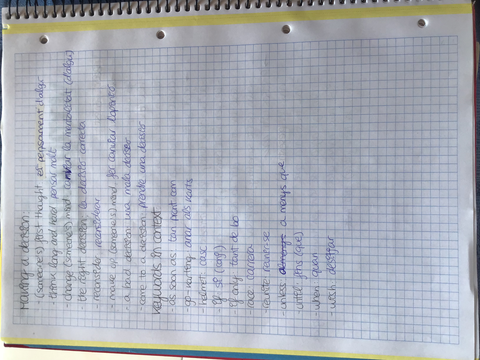 Making a decision:
- (someone's) first thought el pensament d'algú
- think long and hard pensar molt
- change (someone's) mind canviar la mentalitat (d'algú)
- the right decision la decisió correcta
- reconsider reconsiderar
- make up (someone's) mind fer canviar l'opinió
- a bad decision una mala decisió
- come to a decision prendre una decisió
Keywords in context
- as soon as tan aviat com
- go karting anar als karts
- helmet casc
- if si (cond)
- if only! tant de bo
- race carrera
- reunite reunir-se
- unless a menys que
- until fins (que)
- when quan
- wish desitjar